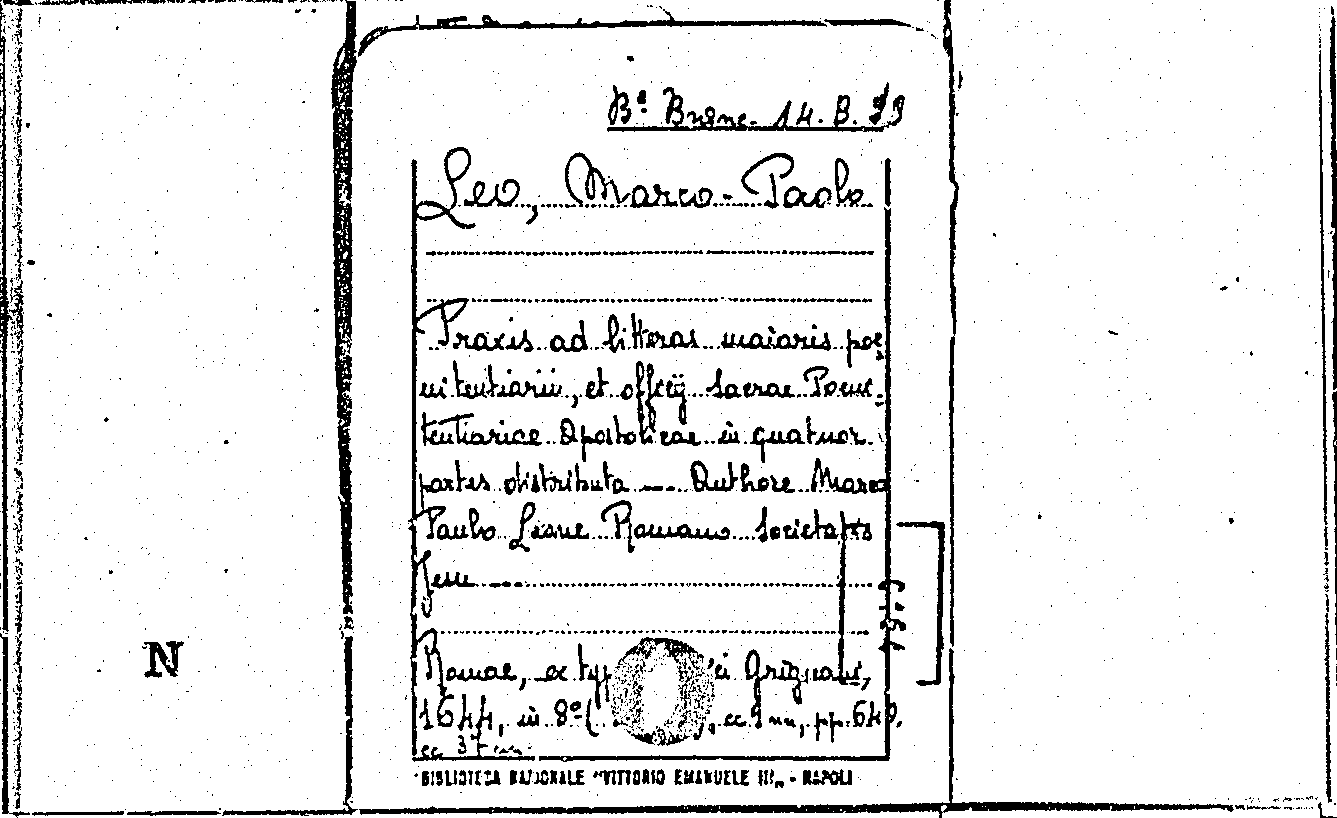 Bª Branc. 14. B.
Leo, Marco-Paolo
Praxis ad litteras maioris poe-
nitentiarii, et officij sacrae Poeni-
tentiariae Apostolicae in quatuor
partes distributa .... Authore Marco
Paulo Leone Romano Societatis
Jesu ....
1969
Romae, ex typ Grignani,
1644, in 8º ( , cc 9 nn, pp. 640.
cc 37 nn.
BIBLIOTECA NAZIONALE "VITTORIO EMANUELE III„ - NAPOLI
N